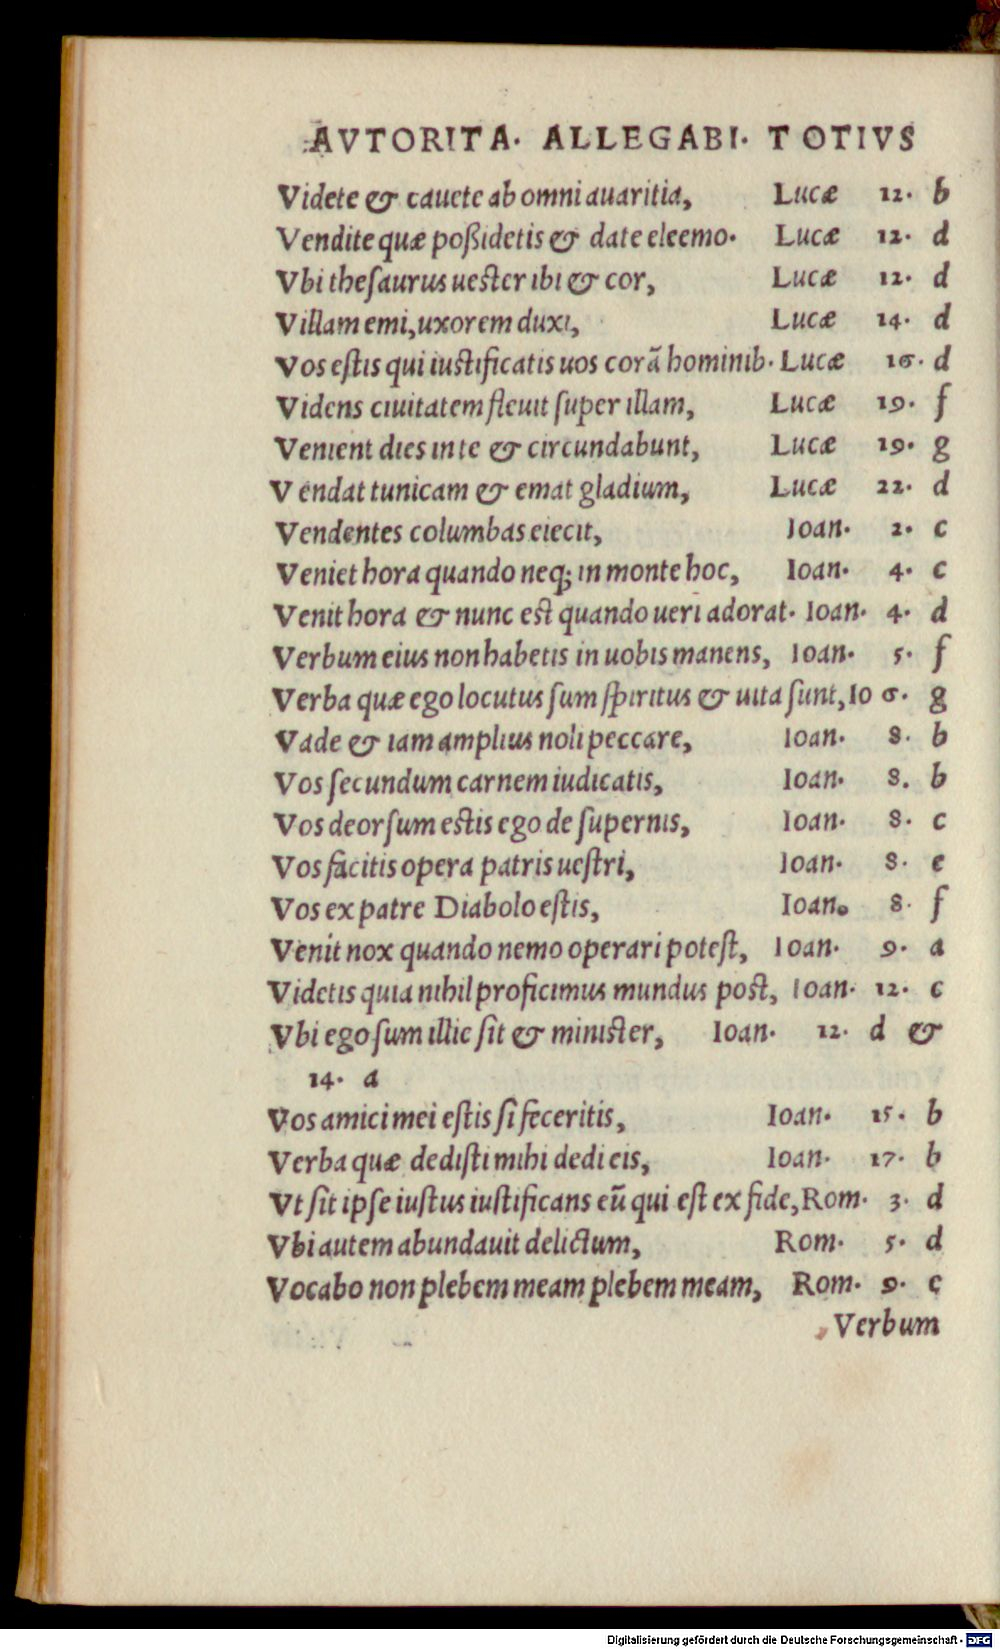 AVTORITA. ALLEGABI. TOTIVS
Videte & cauete ab omni auaritia, Lucæ 12. b
Vendite quæ poßidetis & date eleemo. Lucæ 12. d
Vbi theſaurus uester ibi & cor, Lucæ 12. d
Villam emi, uxorem duxi, Lucæ 14. d
Vos eſtis qui iustificatis uos corã hominib. Lucæ 16. d
Videns ciuitatem fleuit ſuper illam, Lucæ 19. f
Venient dies in te & circundabunt, Lucæ 19. g
Vendat tunicam & emat gladium, Lucæ 22. d
Vendentes columbas eiecit, Ioan. 2. c
Veniet hora quando neq; in monte hoc, Ioan. 4. c
Venit hora & nunc est quando ueri adorat. Ioan. 4. d
Verbum eius non habetis in uobis manens, Ioan. 5. f
Verba quæ ego locutus ſum ſpiritus & uita ſunt, Io 6. g
Vade & iam amplius noli peccare, Ioan. 8. b
Vos ſecundum carnem iudicatis, Ioan. 8. b
Vos deorſum estis ego de ſupernis, Ioan. 8. c
Vos facitis opera patris ueſtri, Ioan. 8. e
Vos ex patre Diabolo eſtis, Ioan. 8. f
Venit nox quando nemo operari poteſt, Ioan. 9. a
Videtis quia nihil proficimus mundus post, Ioan. 12. c
Vbi ego ſum illic ſit & minister, Ioan. 12. d &
14. a
Vos amici mei eſtis ſi feceritis, Ioan. 15. b
Verba quæ dediſti mihi dedi eis, Ioan. 17. b
Vt ſit ipſe iuſtus iuſtificans eũ qui eſt ex fide, Rom. 3. d
Vbi autem abundauit delictum, Rom. 5. d
Vocabo non plebem meam plebem meam, Rom. 9. c
Verbum
Digitalisierung gefördert durch die Deutsche Forschungsgemeinschaft - DFG